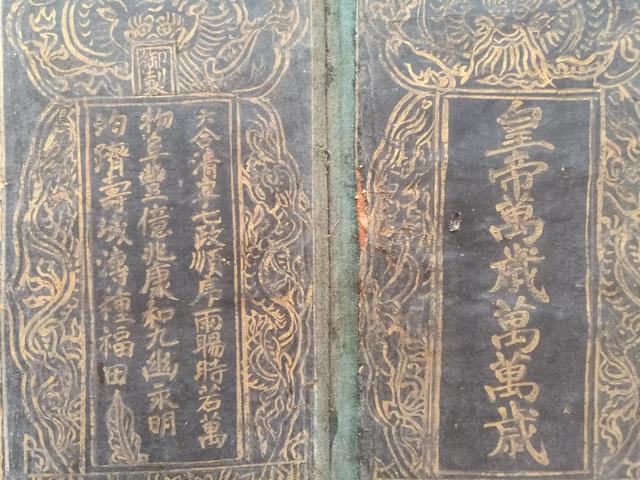 皇帝萬歳萬萬歳
御製
六合清寧七政順序雨暘時若萬
物阜豐億兆康和九幽永明
均隮壽域溥種福田